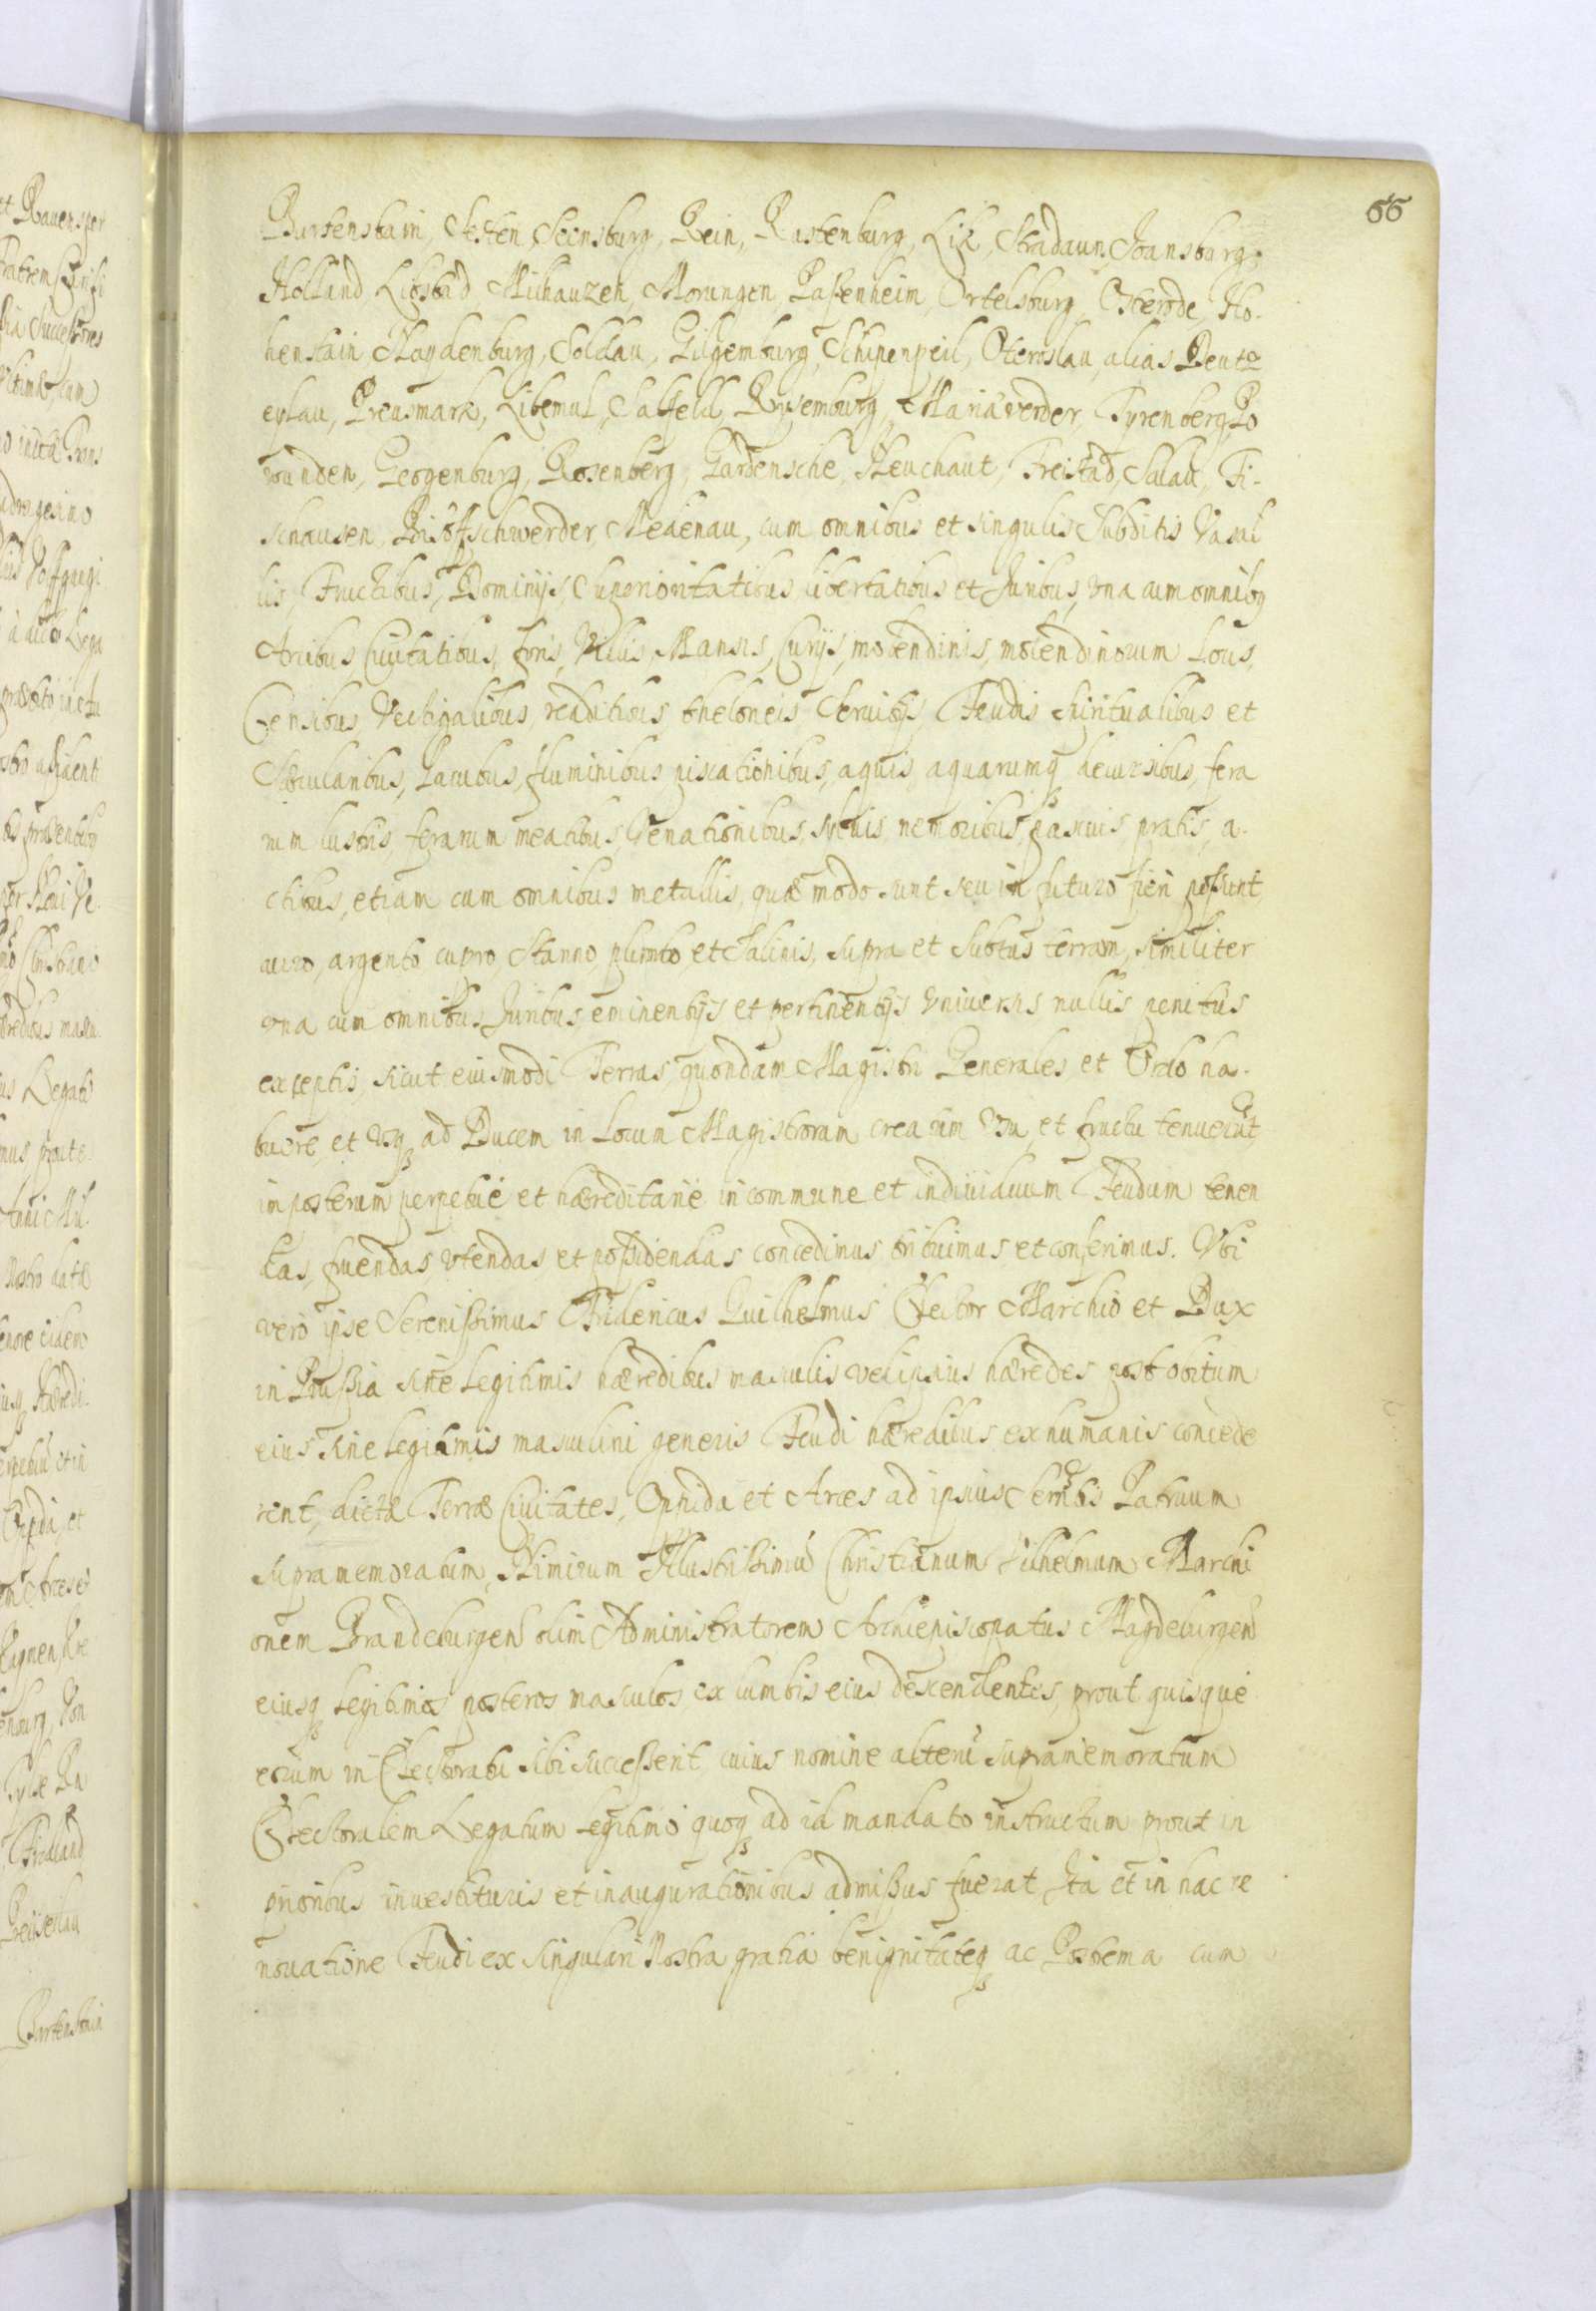 66
Bartenstain, Sesten, Seensburg, Rein, Rastenburg, Lik, Stradaun, Joansburg,
Holland, Libstad, Milhauzen, Morungen, Paßenheim, Ortelsburg, Osterode, Ho-
henstain, Naydenburg, Soldau, Gilgemburg, Schipenpeil, Oteroslau, alias Deutz
eylau, Preusmark, Libemul, Salfeld, Rysemburg, Mariæverder, Tyrenberg, Po
vunden, Georgenburg, Rosenberg, Gardensche, Neuchaut, Freistad, Salau, Fi-
schausen, Bisoffschwerder, Medenau, cum omnibus et singulis Subditis Vasal
lis, Fructibus, Dominijs, Superioritatibus libertatibus et Juribus, vna cum omnibꝫ
Arcibus Ciuitatibus, foris, Villis, Mansis, Curijs, molendinis, molendinorum Locis,
Censibus, Vectigalibus, redditibus, theloneis, Seruitijs, Feudis Spiritualibus et
Sæcularibus, Lacubus, fluminibus, piscationibus, aquis, aquarumqꝫ decursibus, fera
rum lustris, ferarum meatibus, Venationibus, syluis, nemoribus, pascuis, pratis, a-
ctibus, etiam cum omnibus metallis, quæ modo sunt seu in futuro fieri possunt,
auro, argento, cupro, Stanno, plumbo, et Salinis, supra et subtus terram, similiter
vna cum omnibus Juribus, eminentijs et pertinentijs vniuersis nullis penitus
exceptis, sicut eiusmodi Terras, quondam Magistri Generales, et Ordo ha-
buere, et vsqꝫ ad Ducem in Locum Magistrorum creatum vsu, et fructu tenuerūt,
imposterum perpetue et hæreditarie in commune et indiuiduum Feudum tenen
das, fruendas, vtendas et poßidendas concedimus tribuimus et conferimus. Vbi
verò ipse Serenißimus Fridericus Guilhelmus Elector Marchio et Dux
in Prußia sine legitimis hæredibus masculis, vel ipsius hæredes post obitum
eius sine legitimis masculini generis Feudi hæredibus ex humanis concede
rent, dictæ Terræ Ciuitates, Oppida et Arces ad ipsius Serētis Patruum
supramemoratum, Nimirum Illustrißimū Christianum Vilhelmum Marchi
onem Brandeburgen̄ olim Administratorem Archiepiscopatus Magdeburgen̄
eiusqꝫ legitimos posteros masculos, ex lumbis eius descendentes, prout quisque
eorum in Electoratu sibi succeßerit, cuius nomine alterū supramemoratum
Electoralem Legatum legitimo quoqꝫ ad id mandato instructum prout in
prioribus inuestituris et inaugurationibus admißus fuerat, Ita et in hac re
nouatione Feudi ex singulari Nostra gratia benignitateqꝫ ac Postrema cum